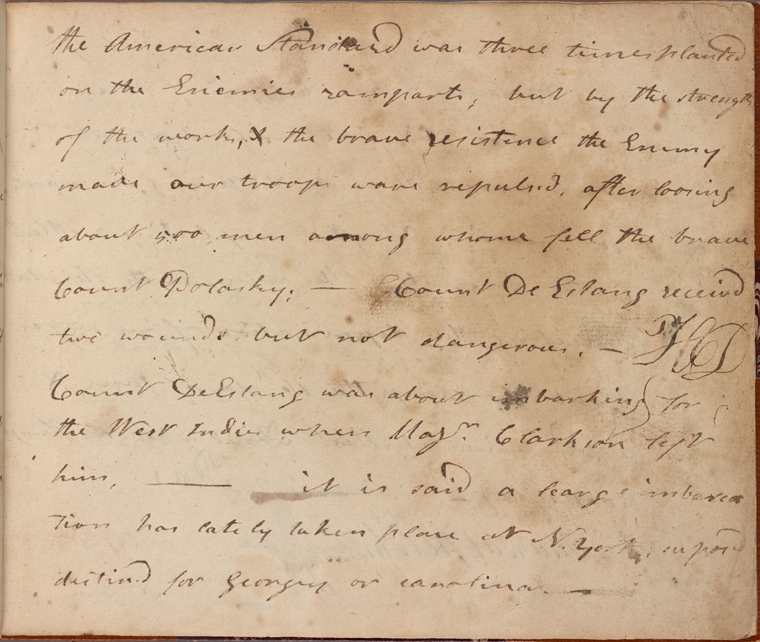 the American Standard was three times planted
on the Enemies ramparts, but by the strength
of the works, & the brave resistence the Enemy
made our troops ware repulsd, after loosing
about 500 men among whome fell the brave
Count Polasky. — Count De Estang receivd
two wounds but not dangerous. —
Count DeEstang was about imbarking for
the West Indies when Majr. Clarkson left
him, — it is said a learge imbarca
tion has lately taken place at N. York, supos'd
distind for Georgey or carolina —